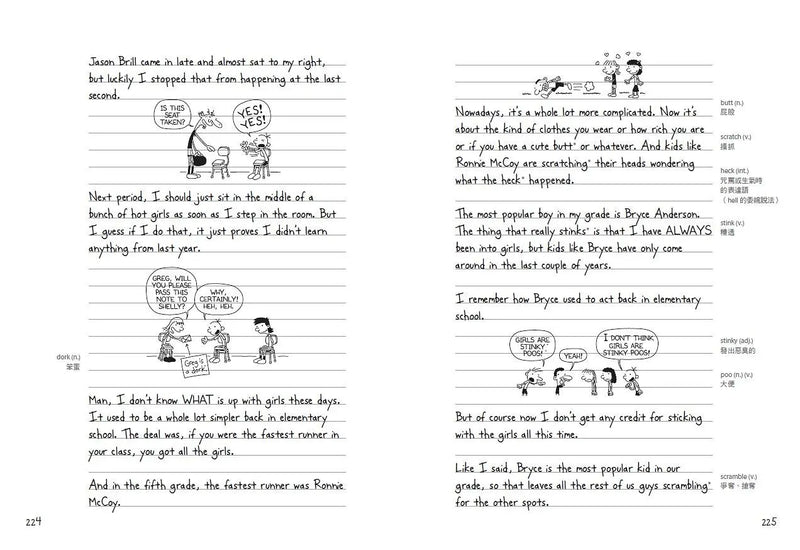 Jason Brill came in late and almost sat to my right,
but luckily I stopped that from happening at the last
second.
IS THIS
SEAT
TAKEN?
YES!
YES!
Next period, I should just sit in the middle of a
bunch of hot girls as soon as I step in the room. But
I guess if I do that, it just proves I didn't learn
anything from last year.
GREG, WILL
YOU PLEASE
PASS THIS
NOTE TO
SHELLY?
WHY,
CERTAINLY!
HEH, HEH.
Greg is
a dork
dork (n.)
笨蛋
Man, I don't know WHAT is up with girls these days.
It used to be a whole lot simpler back in elementary
school. The deal was, if you were the fastest runner in
your class, you got all the girls.
And in the fifth grade, the fastest runner was Ronnie
McCoy.
224
Nowadays, it's a whole lot more complicated. Now it's
about the kind of clothes you wear or how rich you are
or if you have a cute butt* or whatever. And kids like
Ronnie McCoy are scratching* their heads wondering
what the heck* happened.
butt (n.)
屁股
scratch (v.)
搔抓
heck (int.)
咒罵或生氣時
的表達語
（hell 的委婉說法）
The most popular boy in my grade is Bryce Anderson.
The thing that really stinks* is that I have ALWAYS
been into girls, but kids like Bryce have only come
around in the last couple of years.
stink (v.)
糟透
I remember how Bryce used to act back in elementary
school.
GIRLS ARE
STINKY*
POOS!*
YEAH!
I DON'T THINK
GIRLS ARE
STINKY POOS!
stinky (adj.)
發出惡臭的
poo (n.) (v.)
大便
But of course now I don't get any credit for sticking
with the girls all this time.
Like I said, Bryce is the most popular kid in our
grade, so that leaves all the rest of us guys scrambling*
for the other spots.
scramble (v.)
爭奪、搶奪
225